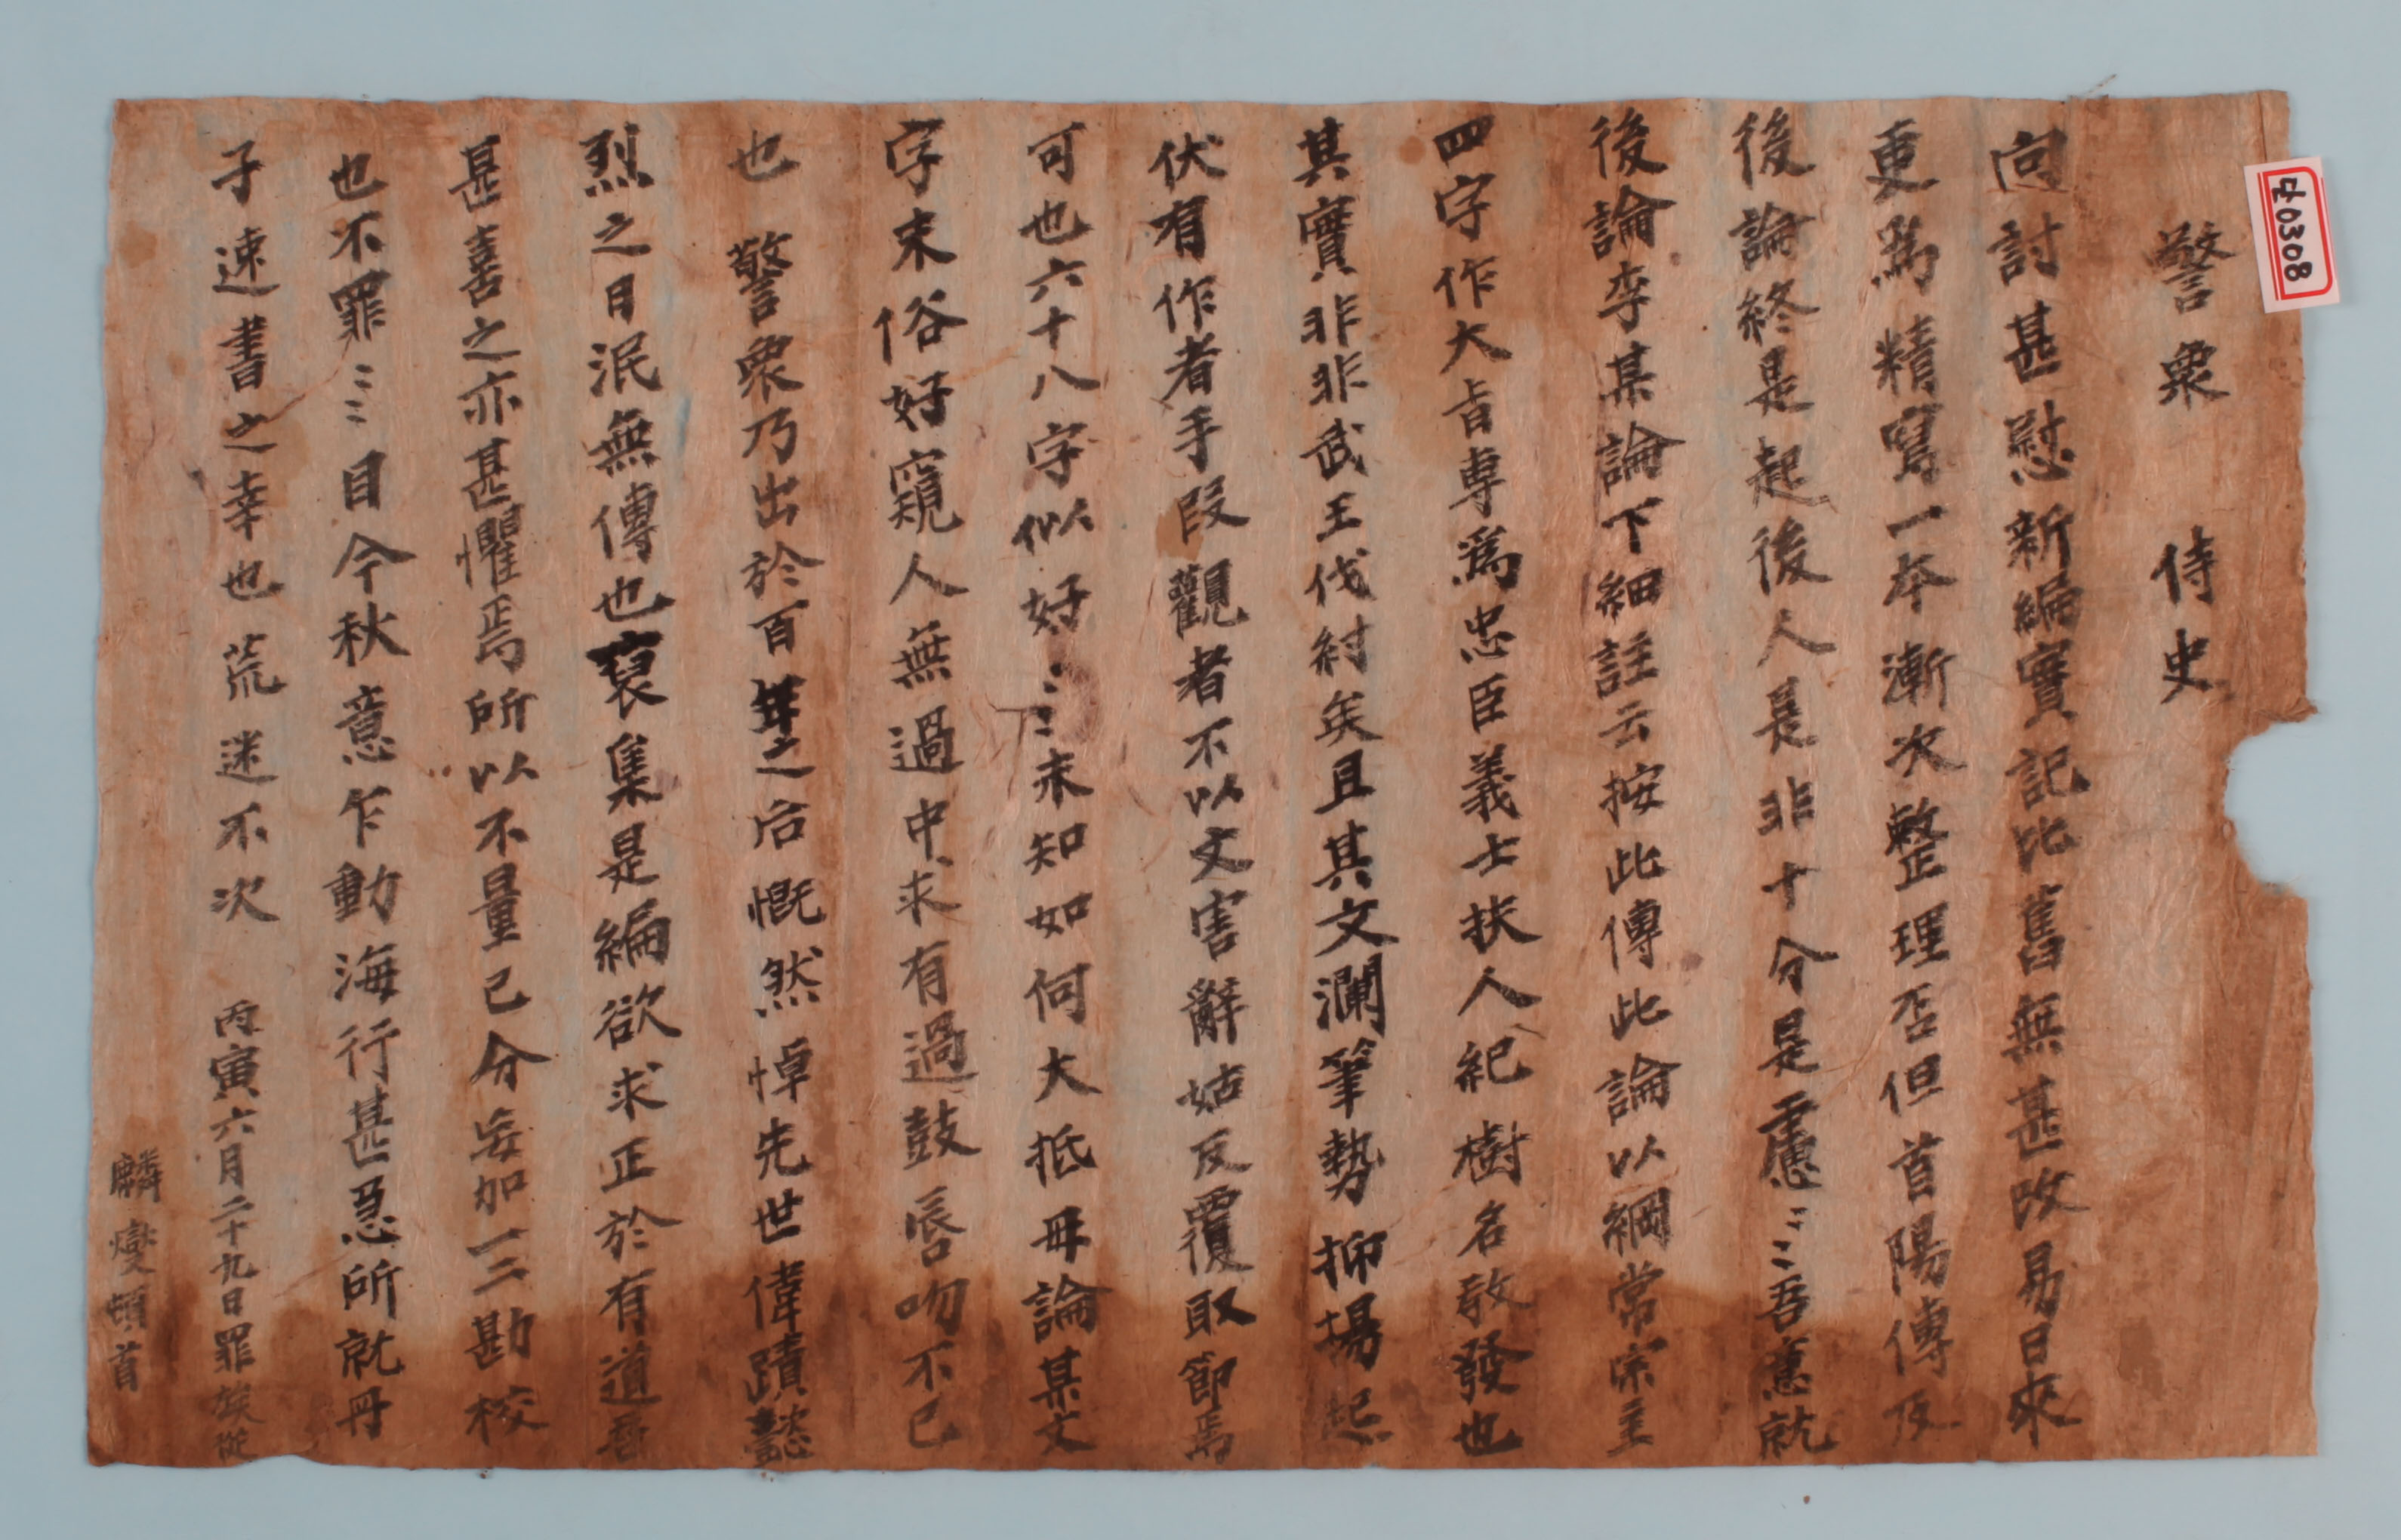 警衆 侍史
向討甚慰新編實記比舊無甚改易日來
更爲精寫一本漸次整理否但首陽傳及
後論終是起後人是非十分是慮〻〻吾意就
後論李某論下細註云按此傳此論以綱常宗主
四字作大旨專爲忠臣義士扶人紀樹名敎發也
其實非非武王伐紂矣且其文瀾筆勢抑揚起
伏有作者手段觀者不以文害辭姑反覆取節焉
可也六十八字似好〻〻未知如何大抵毋論某文
字末俗好窺人無過中求有過鼓唇吻不已
也 警衆乃出於百年之后慨然悼先世偉蹟懿
烈之目泯無傳也裒集是編欲求正於有道吾
甚喜之亦甚懼焉所以不量己分妄加一二勘校
也不罪〻〻目今秋意乍動海行甚急所就丹
子速書之幸也荒迷不次 丙寅六月二十九日罪族從
麟燮頓首
40308